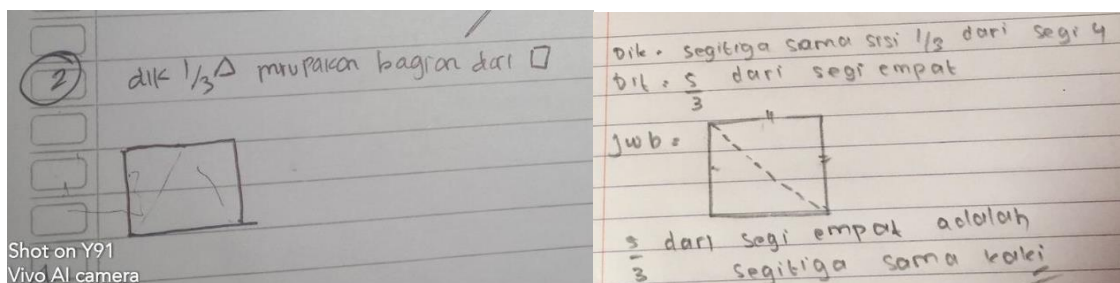 2
dik 1/3 △ mrupakan bagian dari □
Shot on Y91
Vivo AI camera
Dik . segitiga sama sisi 1/3 dari segi 4
Dit . 5/3 dari segi empat
Jwb =
5/3 dari segi empat adalah
segitiga sama kaki